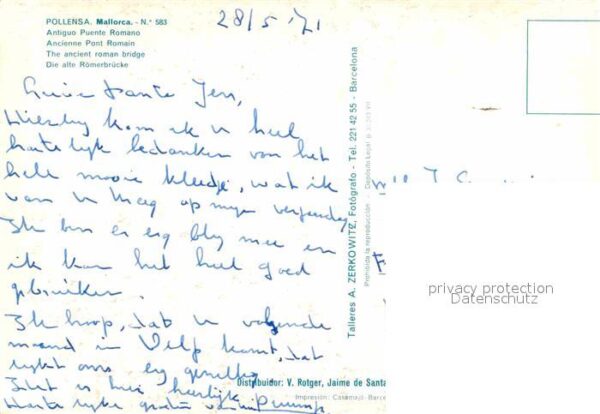 POLLENSA. Mallorca. - N.° 583
Antiguo Puente Romano
Ancienne Pont Romain
The ancient roman bridge
Die alte Römerbrücke
28/5 '71
tante Jen,
Hierbij kom ik u heel
hartelijk bedanken van het
hele mooie kleedje, wat ik
van u kreeg op mijn verjaardag
Ik ben er erg blij mee en
ik kan het heel goed
gebruiken.
Ik hoop, dat u volgende
maand in Velp komt, dat
lijkt ons erg gezellig
Het is hier heerlijk
Hartelijke groeten van
Talleres A. ZERKOWITZ, Fotógrafo - Tel. 221 42 55 - Barcelona
Prohibida la reproducción - Depósito Legal B.
Distribuidor: V. Rotger, Jaime de Santa
Impresión: Casamajó - Barce
privacy protection
Datenschutz